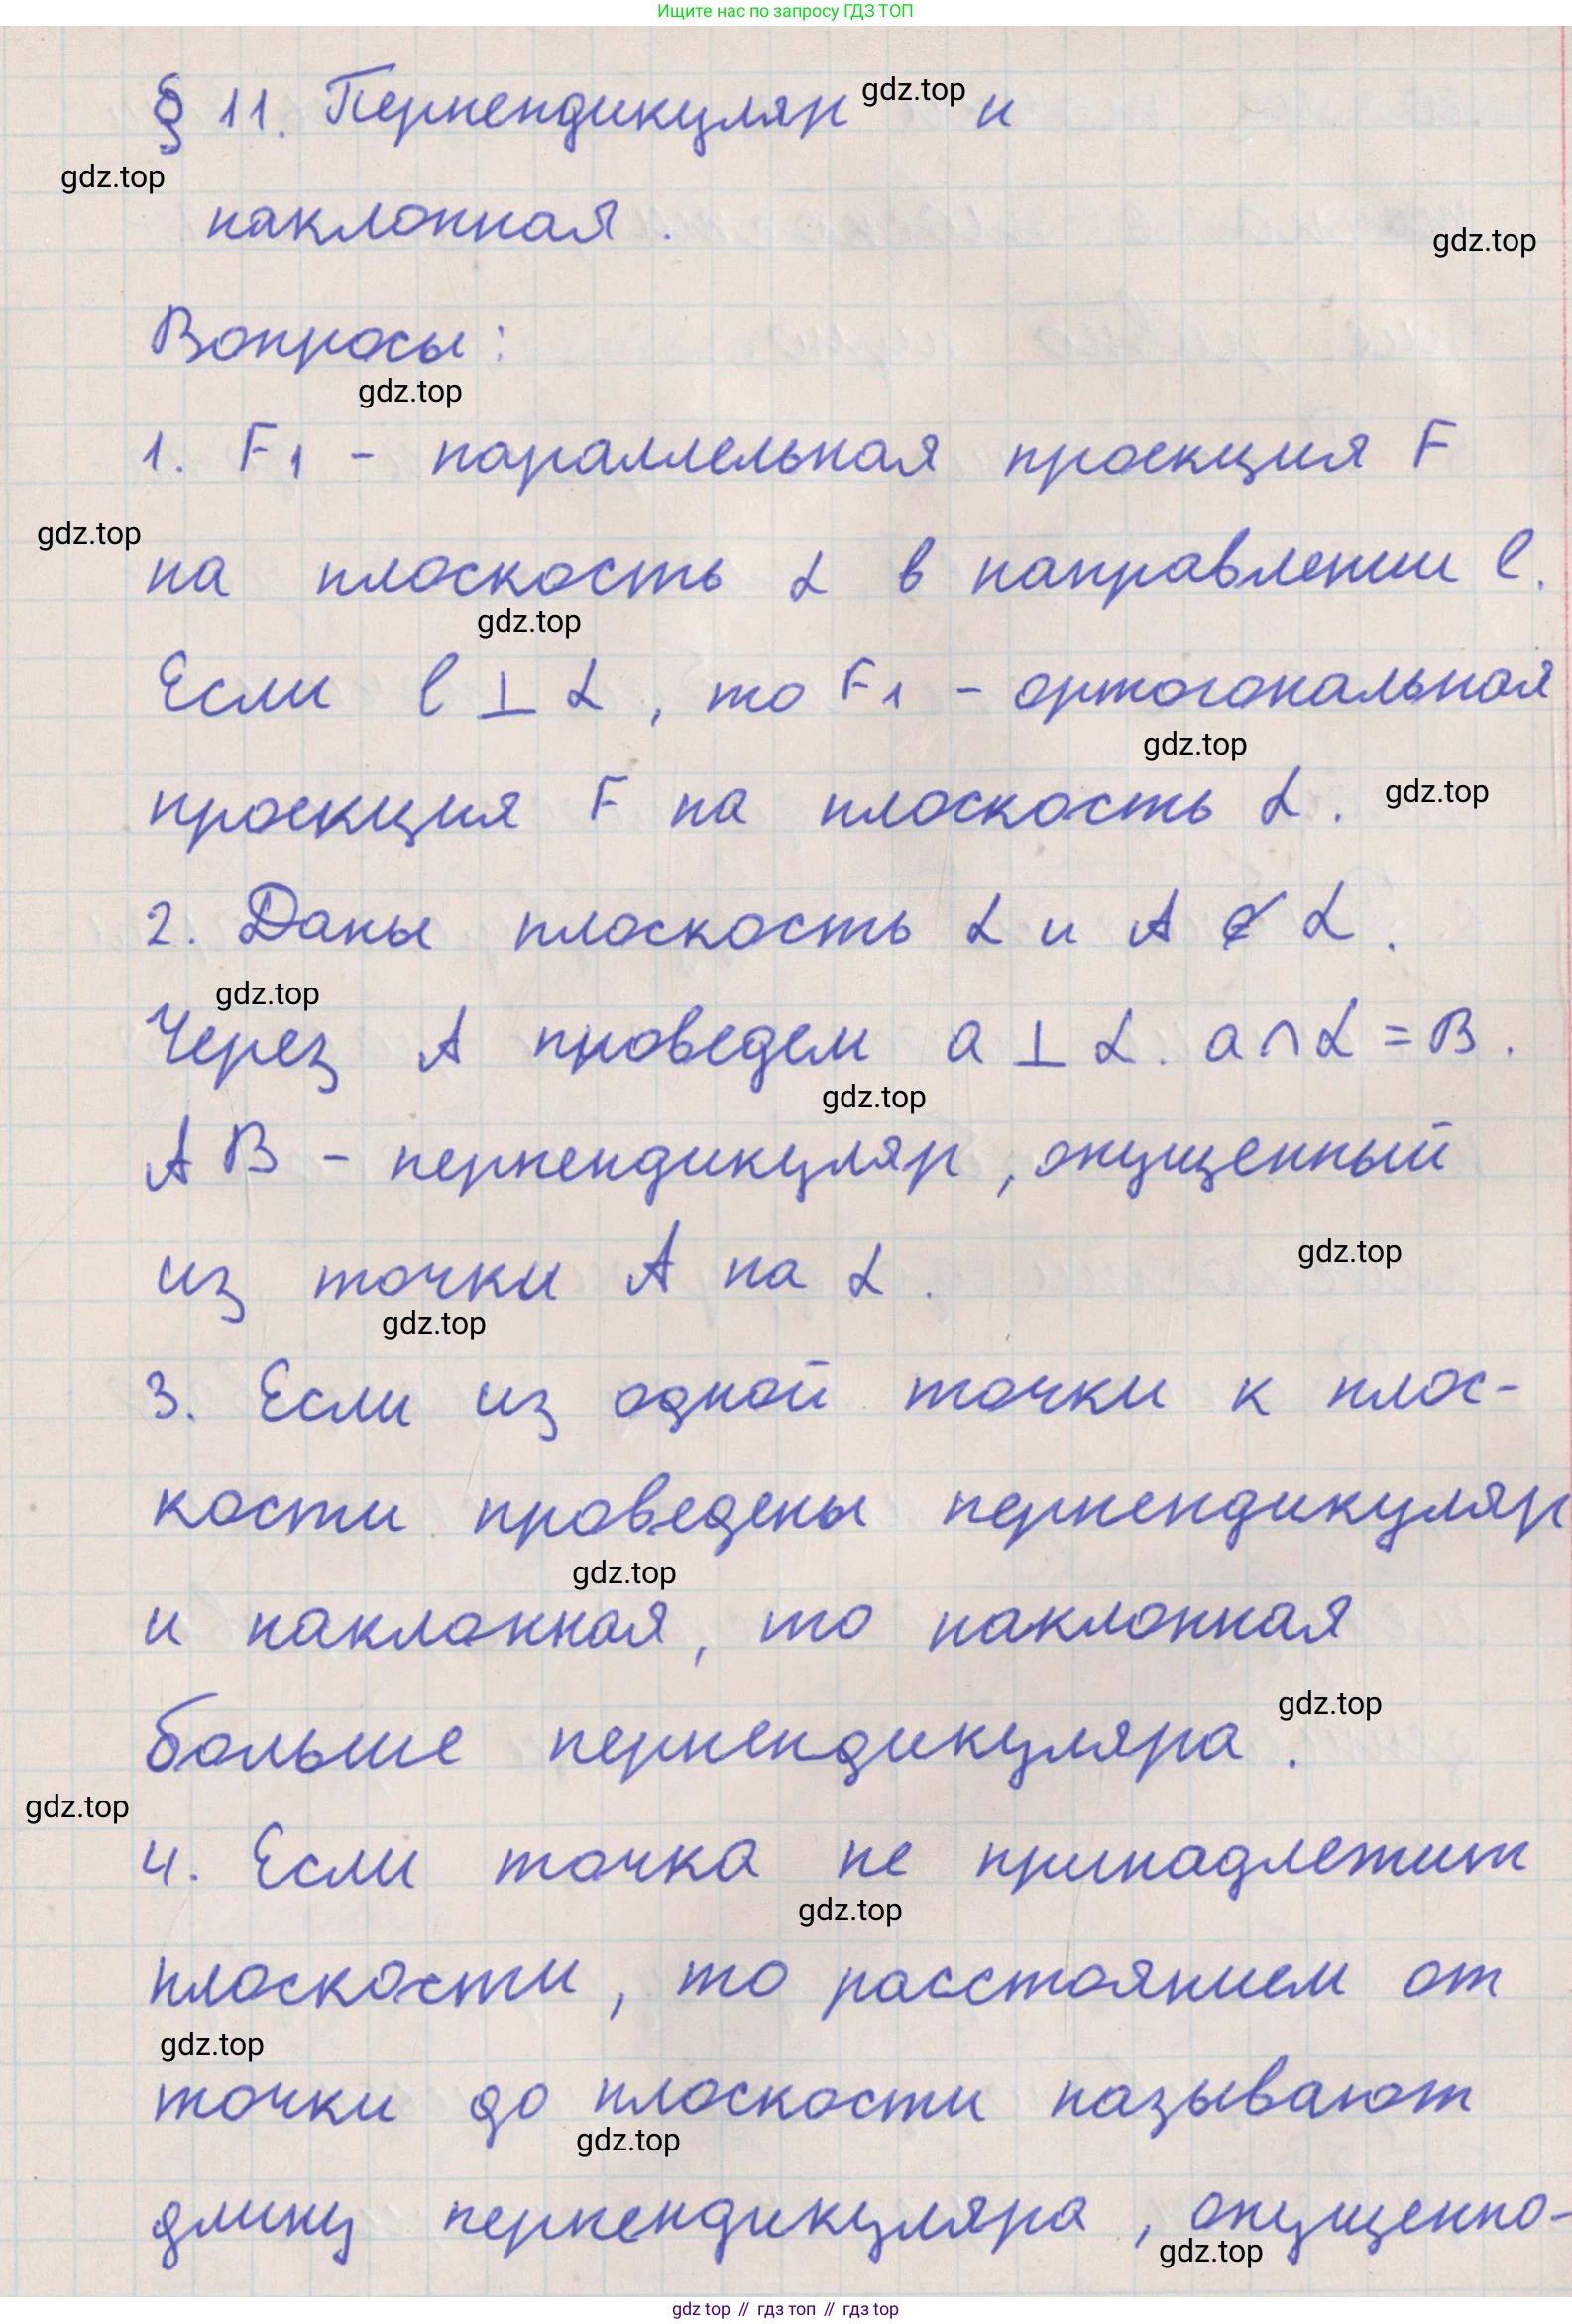 Ищите нас по запросу ГДЗ ТОП
§ 11. Перпендикуляр и
gdz.top
gdz.top
наклонная.
gdz.top
Вопросы:
gdz.top
1. F₁ - параллельная проекция F
gdz.top
на плоскость α в направлении l.
gdz.top
Если l ⊥ α, то F₁ - ортогональная
gdz.top
проекция F на плоскость α.
gdz.top
2. Даны плоскость α и A ∉ α.
gdz.top
Через A проведем a ⊥ α. a ∩ α = B.
gdz.top
AB - перпендикуляр, опущенный
gdz.top
из точки A на α.
gdz.top
3. Если из одной точки к плос-
кости проведены перпендикуляр
gdz.top
и наклонная, то наклонная
gdz.top
больше перпендикуляра.
gdz.top
4. Если точка не принадлежит
gdz.top
плоскости, то расстоянием от
gdz.top
точки до плоскости называют
gdz.top
длину перпендикуляра, опущенно-
gdz.top
gdz top // гдз топ // гдз top